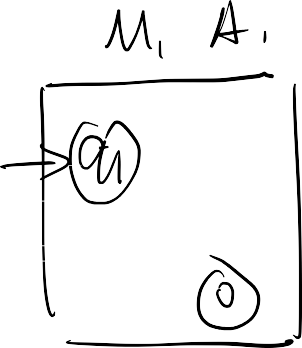 M₁ A₁
q₁